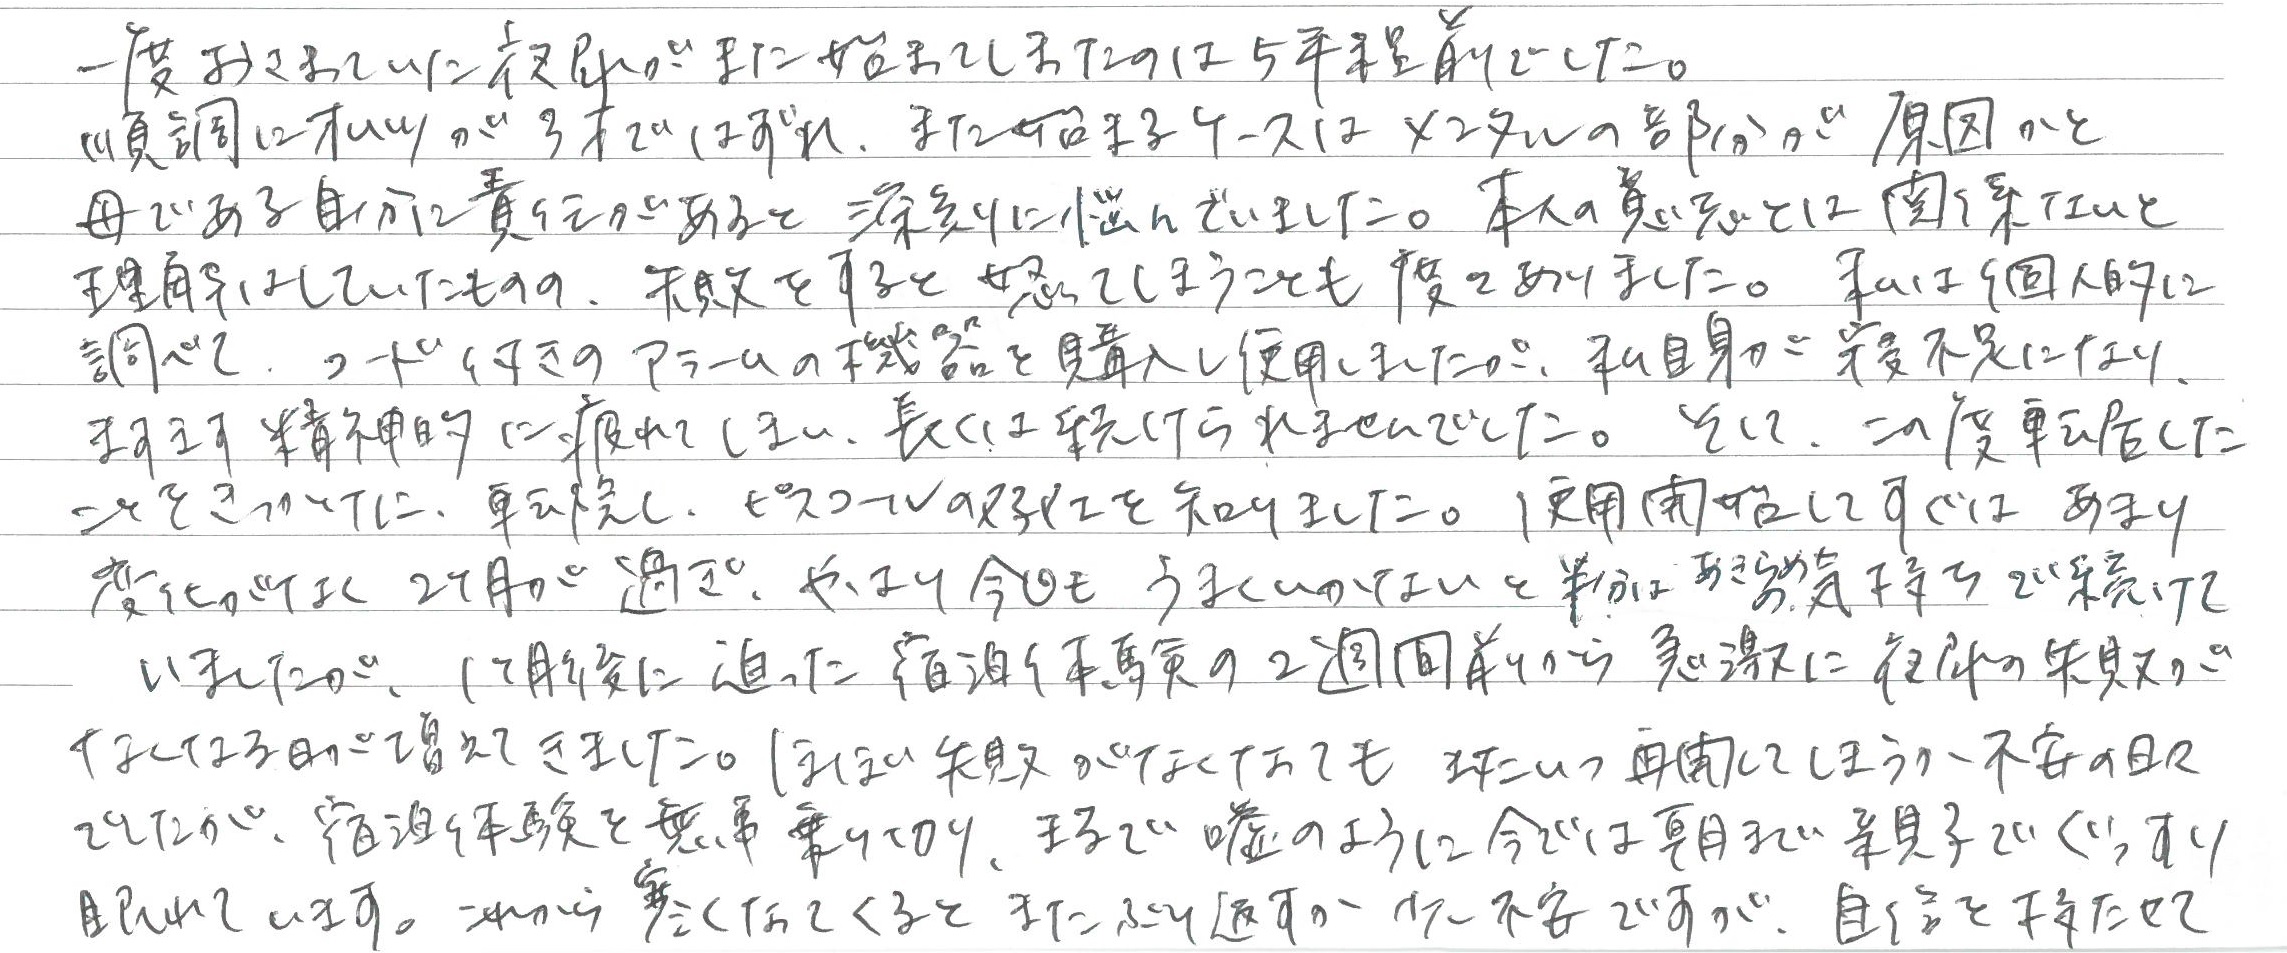 一度おさまっていた夜尿がまた始まってしまったのは5年程前でした。
順調にオムツが3才ではずれ、また始まるケースはメンタルの部分が原因かと
母である自分に責任があると深刻に悩んでいました。本人の意志とは関係ないと
理解はしていたものの、失敗をすると怒ってしまうことも度々ありました。私は個人的に
調べて、コード付きのアラームの機器を購入し使用しましたが、私自身が寝不足になり、
ますます精神的に疲れてしまい、長くは続けられませんでした。そして、この度転居した
ことをきっかけに、転院し、ピスコールの存在を知りました。使用開始してすぐは あまり
変化がなく 2ケ月が過ぎ、やっぱり今回も うまくいかないと半分はあきらめ気持ちで続けて
いましたが、1ケ月後に迫った宿泊体験の2週間前から急激に夜尿の失敗が
なくなる日が増えてきました。ほぼほぼ失敗がなくなっても またいつ再開してしまうか不安の日々
でしたが、宿泊体験を無事乗り切り、まるで嘘のように今では朝まで親子でぐっすり
眠れています。これから寒くなってくると またぶり返すか少し不安ですが、自信を持たせて